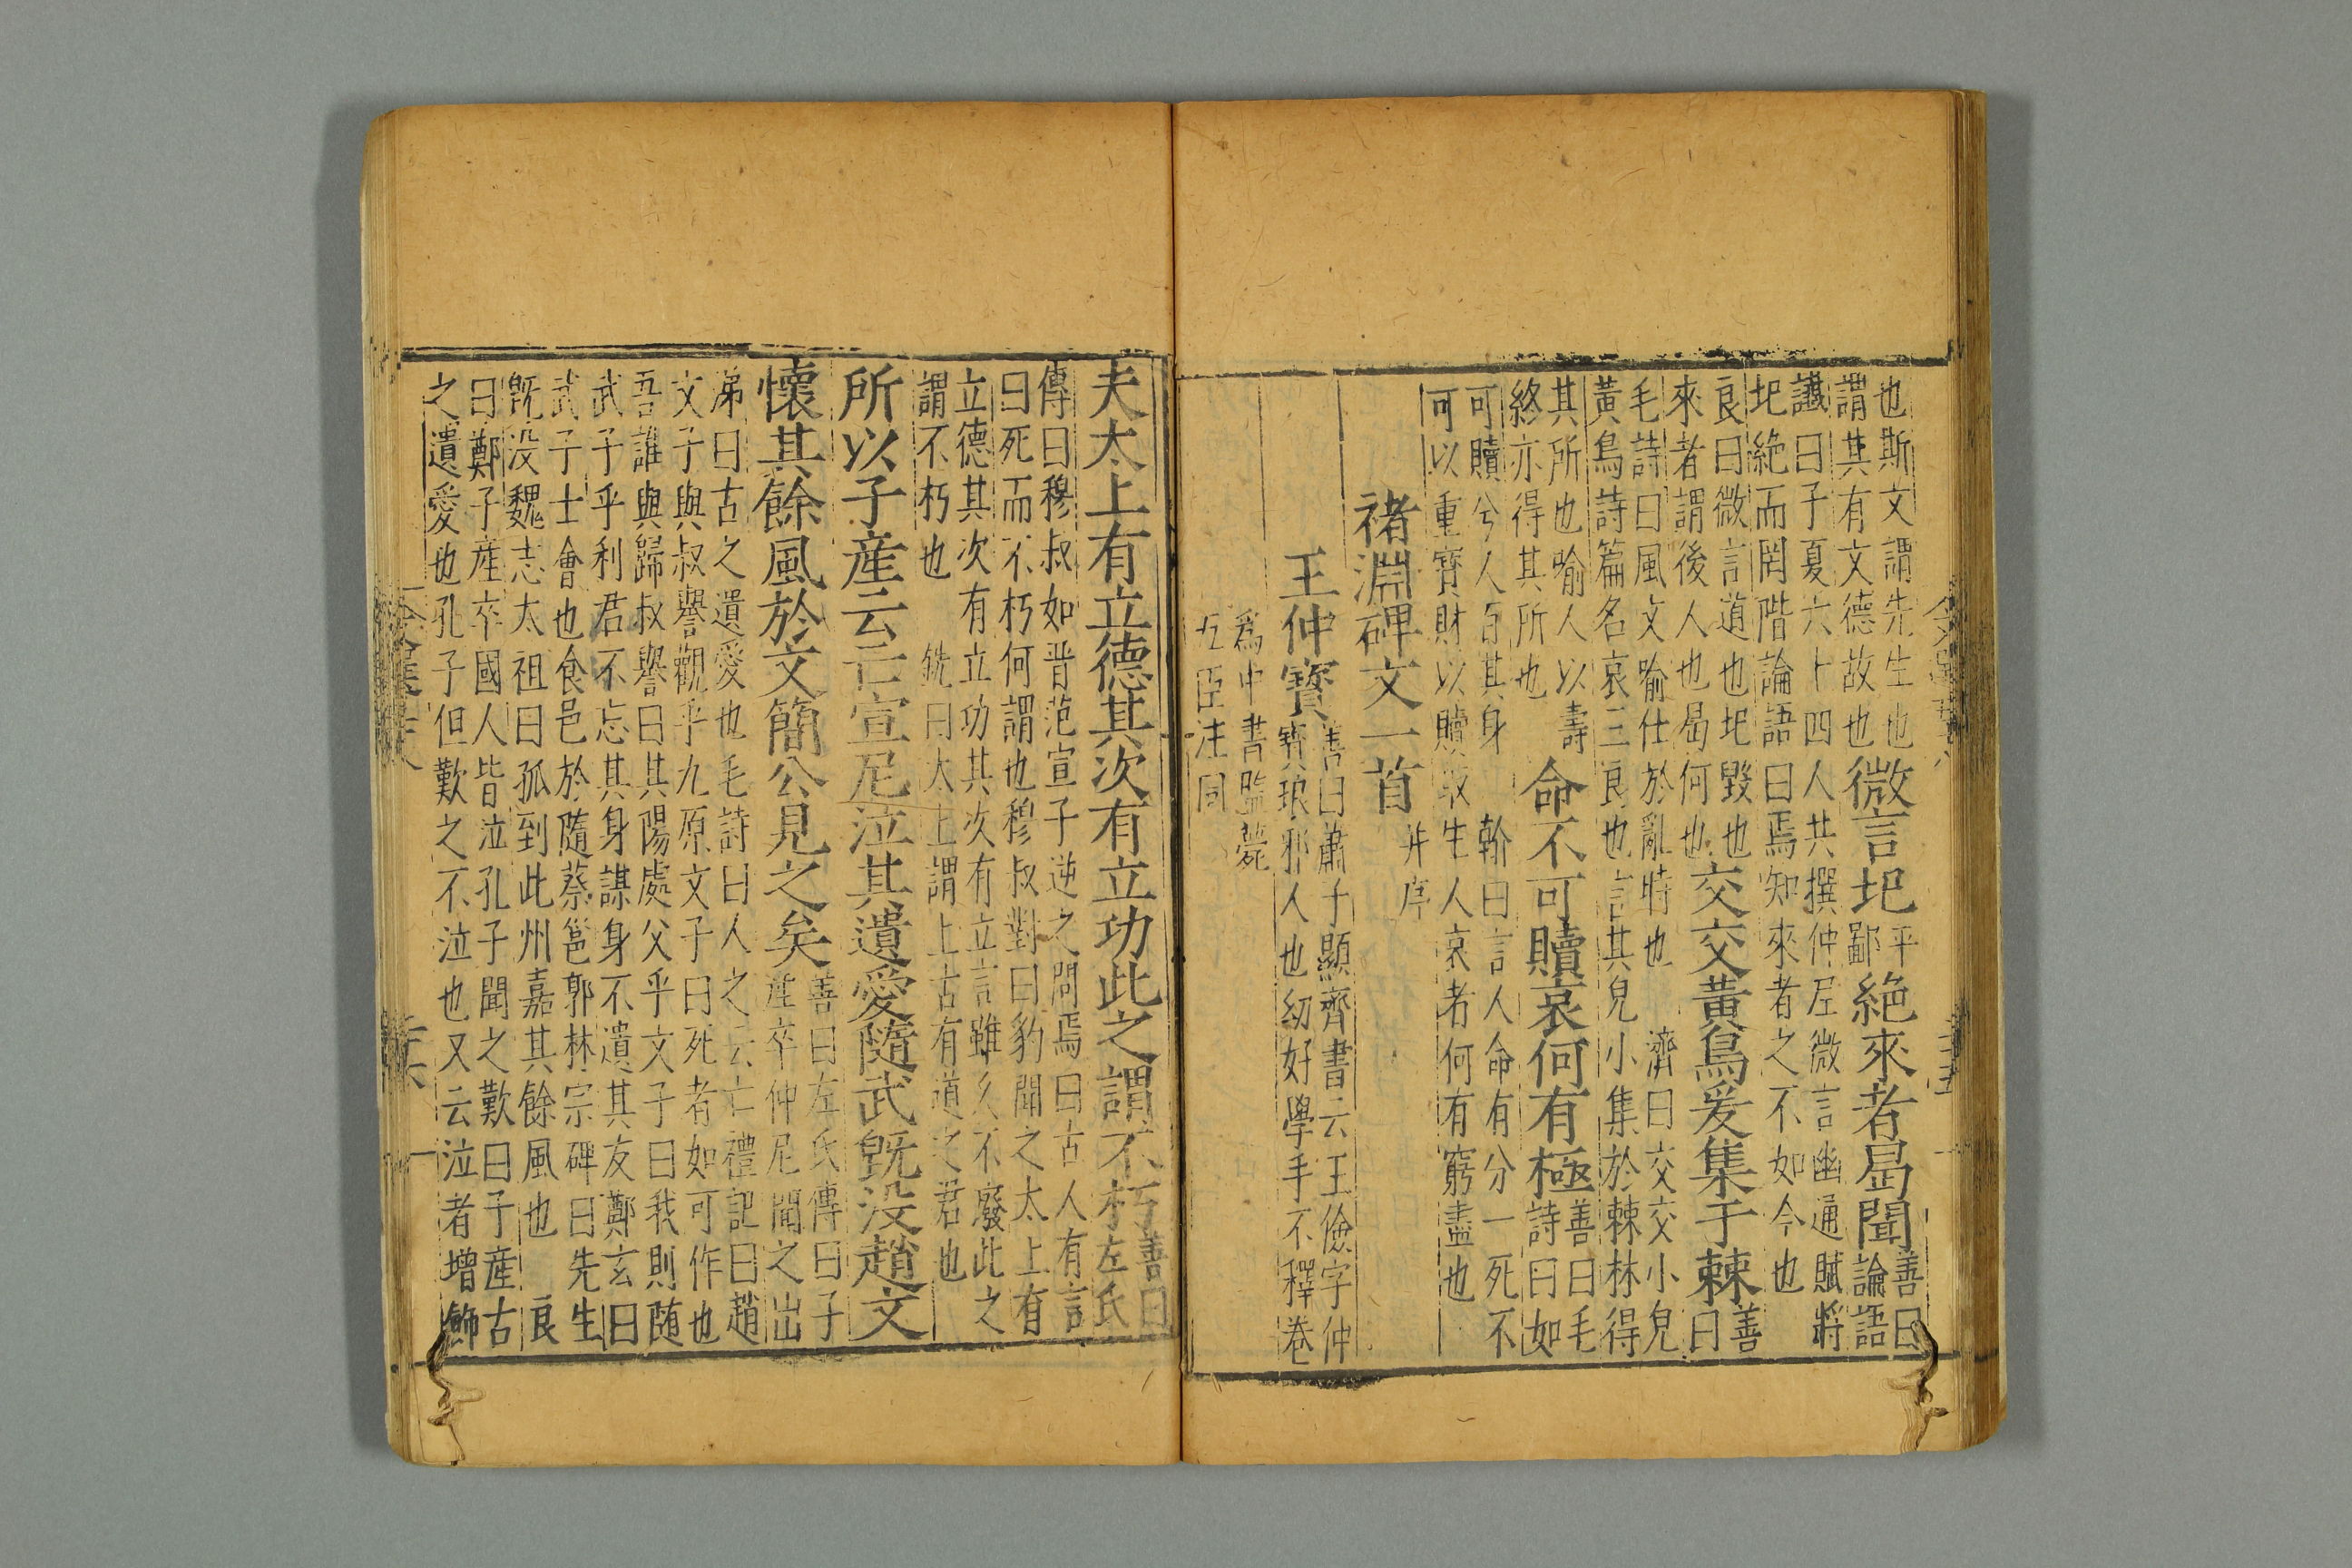 也斯文謂先生也
謂其有文德故也
微言圮
平
鄙
絶來者曷聞
善曰
論語
讖曰子夏六十四人共撰仲尼微言幽通賦將
圮絶而罔階論語曰焉知來者之不如今也
良曰微言道也圮毀也
來者謂後人也曷何也
交交黃鳥爰集于棘
善
曰
毛詩曰風文喻仕於亂時也濟曰交交小皃
黃鳥詩篇名哀三良也言其皃小集於棘林得
其所也喻人以壽
終亦得其所也
命不可贖哀何有極
善曰毛
詩曰如
可贖兮人百其身翰曰言人命有分一死不
可以重寶財以贖取生人哀者何有窮盡也
褚淵碑文一首并序
王仲寶
善曰蕭子顯齊書云王儉字仲
寶琅邪人也幼好學手不釋卷
爲中書監薨
五臣注同
夫太上有立德其次有立功此之謂不朽
善曰
左氏
傳曰穆叔如晉范宣子逆之問焉曰古人有言
曰死而不朽何謂也穆叔對曰豹聞之太上有
立德其次有立功其次有立言雖久不廢此之
謂不朽也銑曰太上謂上古有道之君也
所以子産云亡宣尼泣其遺愛隨武既没趙文
懷其餘風於文簡公見之矣
善曰左氏傳曰子
産卒仲尼聞之出
涕曰古之遺愛也毛詩曰人之云亡禮記曰趙
文子與叔譽觀乎九原文子曰死者如可作也
吾誰與歸叔譽曰其陽處父乎文子曰我則随
武子乎利君不忘其身謀身不遺其友鄭玄曰
武子士會也食邑於隨蔡邕郭林宗碑曰先生
既没魏志太祖曰孤到此州嘉其餘風也良
曰鄭子産卒國人皆泣孔子聞之歎曰子産古
之遺愛也孔子但歎之不泣也又云泣者增飾